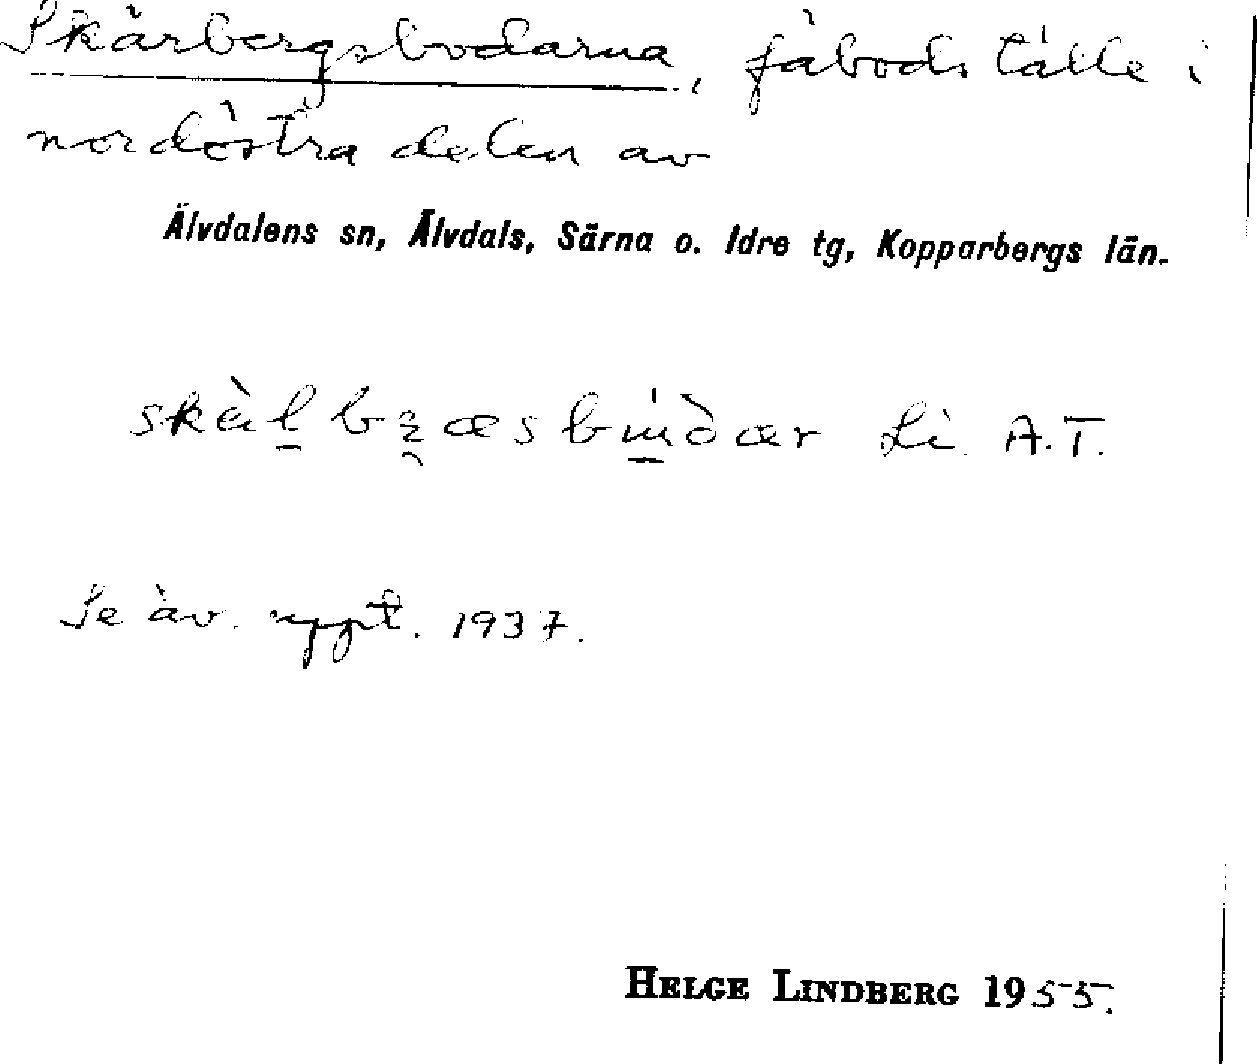 Skärbergsbodarna, fäbodställe i
nordöstra delen av
Älvdalens sn, Älvdals, Särna o. Idre tg, Kopparbergs län.
Li. A.T.
Se äv. uppt. 1937.
HELGE LINDBERG 1955.